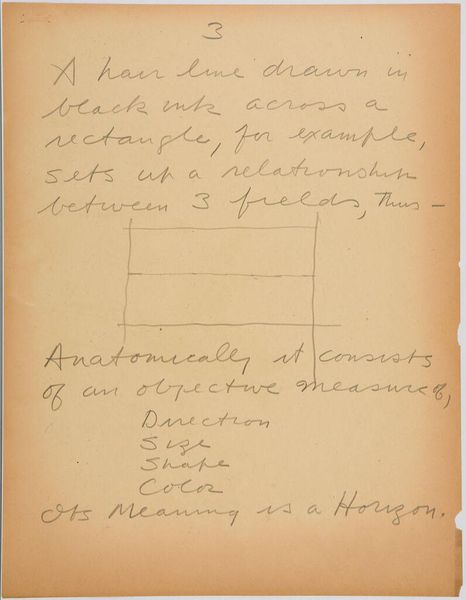 3
A hair line drawn in
black ink across a
rectangle, for example,
sets up a relationship
between 3 fields, Thus —
Anatomically it consists
of an objective measure of,
Direction
Size
Shape
Color
Its Meaning is a Horizon.